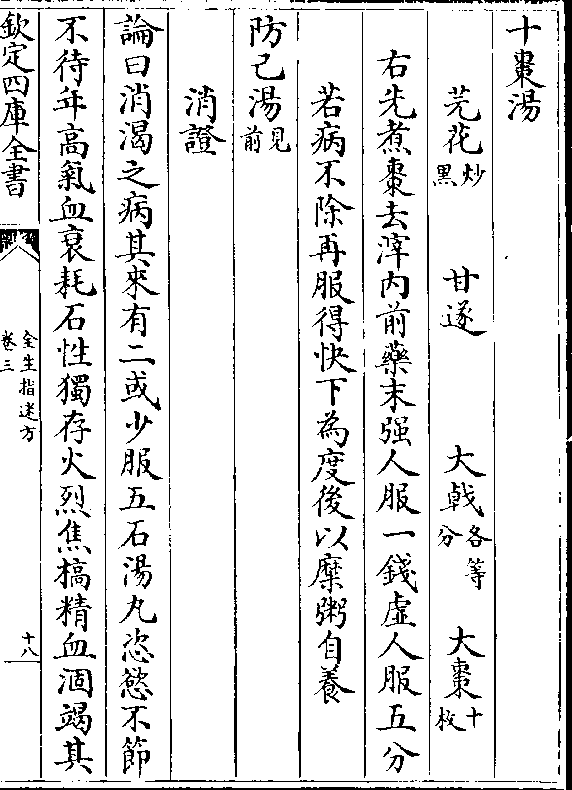 十棗湯
芫花炒黑 甘遂 大戟各等分 大棗十枚
右先煮棗去滓内前藥末强人服一錢虚人服五分
若病不除再服得快下為度後以糜粥自養
防己湯見前
消證
論曰消渴之病其來有二或少服五石湯丸恣慾不節
不待年高氣血衰耗石性獨存火烈焦槁精血涸竭其
欽定四庫全書
全生指迷方
卷三
十八